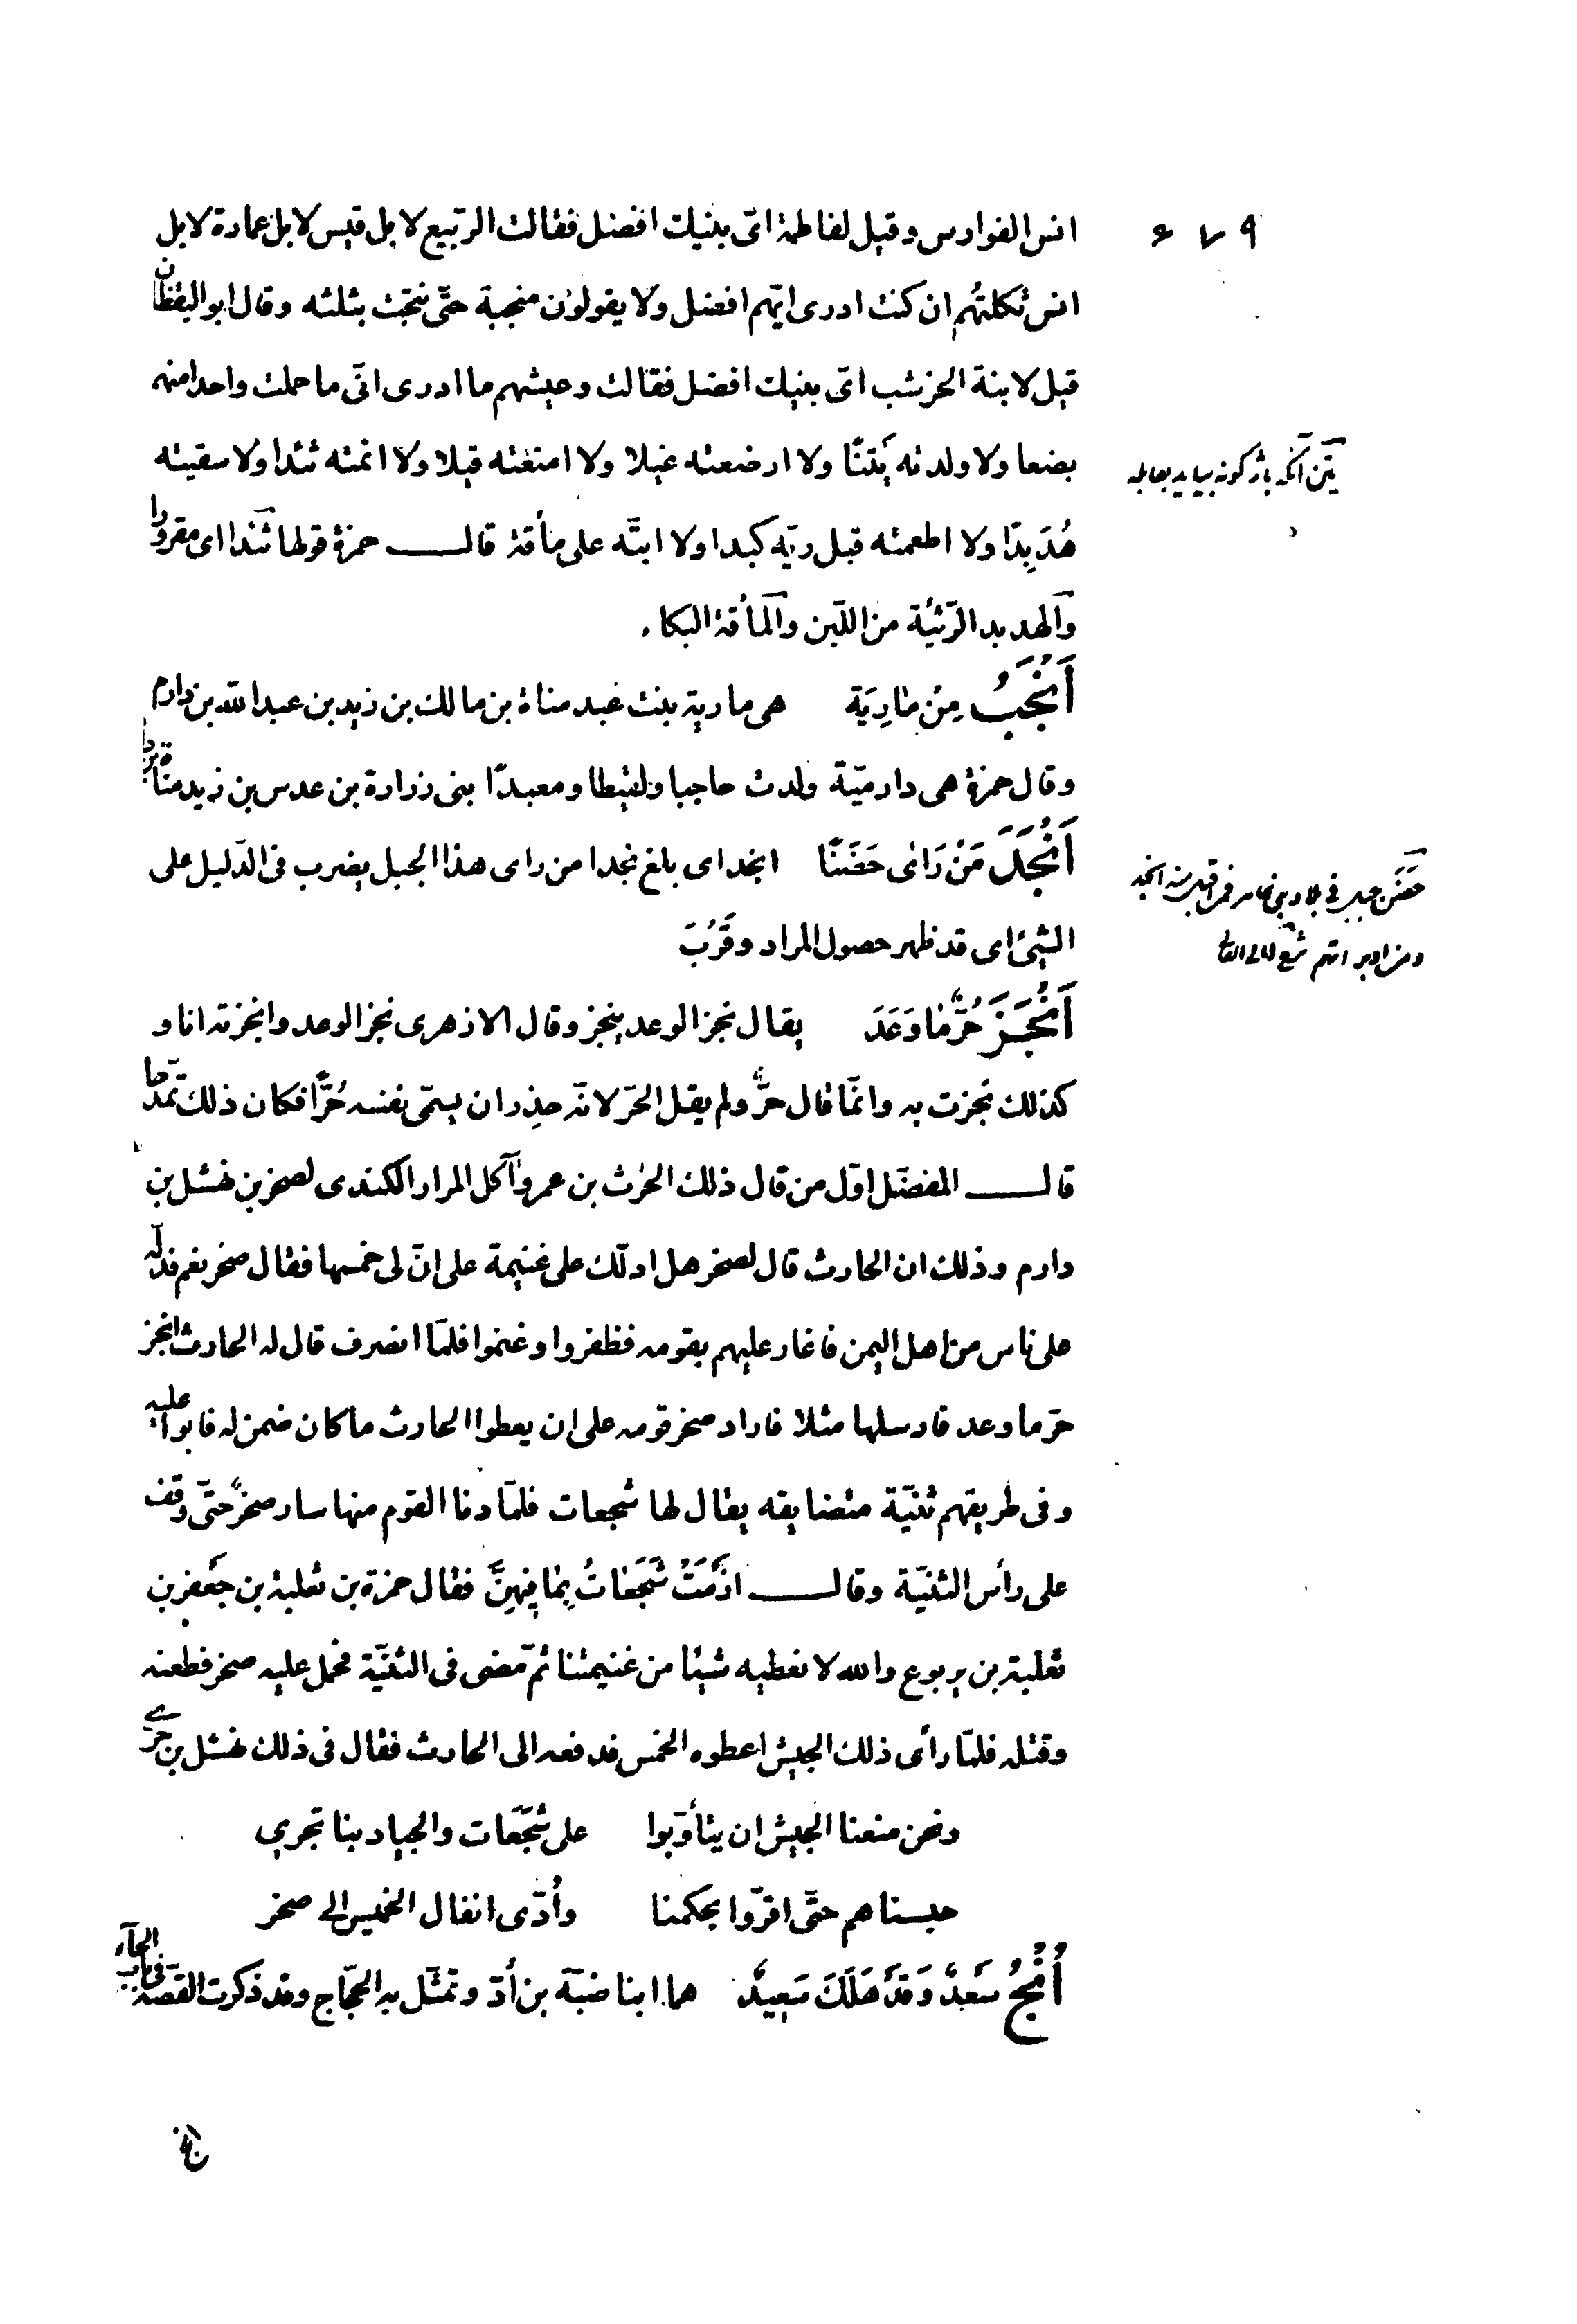 ٦٧٩
انس الفوارس وقيل لفاطمة اىّ بنيك افضل فقالت الرّبيع لا بل قيس لا بل عمارة لا بل
انس ثكلتهُم ان كنت ادرى ايّهم افضل ولا يقولون منجبة حتّى نتجت بثلثه وقال ابو اليقظان
قيل لابنة الخرشب اىّ بنيك افضل فقالت وعيشهم ما ادرى انّى ما حملت واحدا منهم
بضعا ولا ولدته يَتنًا ولا ارضعته غيلا ولا امنعته قيلا ولا انمته ثئدا ولا سقيته
هُدَبِدًا ولا اطعمته قبل ريّه كبدا ولا ابتّه على مأقة قال حمزة قولها ثئدا اى مقرورا
والهدبد الرّثيئة من اللّبن والمأقة البكاء
يَتن آنكه باژكونه بيايد بعابله
اَنْجَبُ مِنْ مٰارِيَة هى مارية بنت عبد مناة بن مالك بن زيد بن عبد اللّه بن دارم
وقال حمزة هى دارميّة ولدت حاجبا ولقيطا ومعبدًا بنى زرارة بن عدس بن زيد مناة بن د
اَنْجَدَ مَنْ رَاٰى حَضَنًا انجد اى بلغ نجدا من راى هذا الجبل يضرب فى الدّليل على
الشيئ اى قد ظهر حصول المراد وقَرُبَ
حَضَن جبل فى بلاد بنى عامر فمن اقبل منه انجد
ومن ادبر اتهم
اَنْجَزَ حُرٌّ مٰا وَعَدَ يقال نجز الوعد ينجز وقال الازهرى نجز الوعد وانجزته انا و
كذلك نجزت به وانّما قال حرٌّ ولم يقل الحرّ لانّه حذِر ان يسمّى نفسه حُرًّا فكان ذلك تمدّحا
قال المفضّل اوّل من قال ذلك الحٰرث بن عمرو آكل المرار الكندى لصخر بن نهشل بن
دارم وذلك ان الحارث قال لصخر هل ادلّك على غنيمة على انّ لى خمسها فقال صخر نعم فدلّه
على ناس من اهل اليمن فاغار عليهم بقومه فظفروا وغنموا فلمّا انصرف قال له الحارث انجز
حرّ ما وعد فارسلها مثلا فاراد صخر قومه على ان يعطوا الحارث ما كان ضمن له فابوا عليه
وفى طريقهم ثنيّة متضايقه يقال لها شجعات فلمّا دنا القوم منها سار صخرٌ حتّى وقف
على رأس الثنيّة وقال اذَمَتْ شَجَعٰاتُ بِمٰا فِيهِنَّ فقال حمزة بن ثعلبة بن جَعفر بن
ثعلبة بن يربوع والله لا نعطيه شيئا من غنيمتنا ثمّ مضى فى الثنيّة فحمل عليه صخر فطعنه
وقتله فلمّا رأى ذلك الجيش اعطوه الخمس فدفعه الى الحارث فقال فى ذلك نهشل بن حرّى
ونحن منعنا الجيش ان يتأوّبوا على شَجَعَات والجياد بنا تجرى
حبسناهم حتّى اقرّوا بحكمنا وأُدّى انفال الخميس الى صخر
اُنْجُ سَعدٌ وَقَدْ هَلَكَ سَعِيدٌ هما ابنا ضبّة بن أدّ وتمثّل به الحجّاج وقد ذكرت القصّة فى باب الحآء